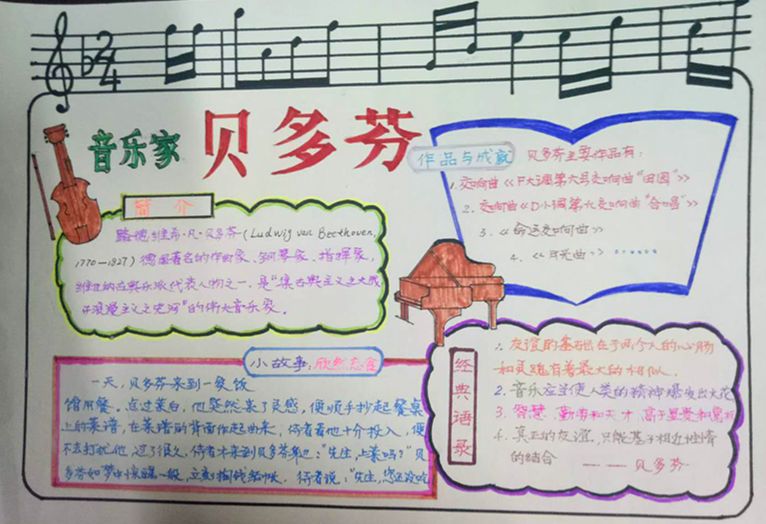 2
4
音乐家 贝多芬
作品与成就
贝多芬主要作品有:
1.交响曲《F大调第六号交响曲"田园"》
2.交响曲《D小调第九交响曲"合唱"》
3.《命运交响曲》
4.《月光曲》……
简介
路德维希·凡·贝多芬(Ludwig van Beethoven,
1770—1827)德国著名的作曲家、钢琴家、指挥家,
维也纳古典乐派代表人物之一,是"集古典主义之大成
开浪漫主义之先河"的伟大音乐家。
小故事:欣然忘食
一天,贝多芬来到一餐饭
馆用餐。点过菜后,他突然来了灵感,便顺手抄起餐桌
上的菜谱,在菜谱的背面作起曲来,侍者看他十分投入,便
不去打扰他,过了很久,侍者才来到贝多芬身边:"先生,上菜吗?"贝
多芬如梦中惊醒一般,立刻掏钱结帐。侍者说:"先生,您还没吃
经典语录
1.友谊的基础在于两个人的心肠
和灵魂有着最大的相似。
2.音乐应当使人类的精神爆发出火花
3.智慧、勤劳和天才,高于显贵和富有
4.真正的友谊,只能基于相近性情
的结合
——贝多芬